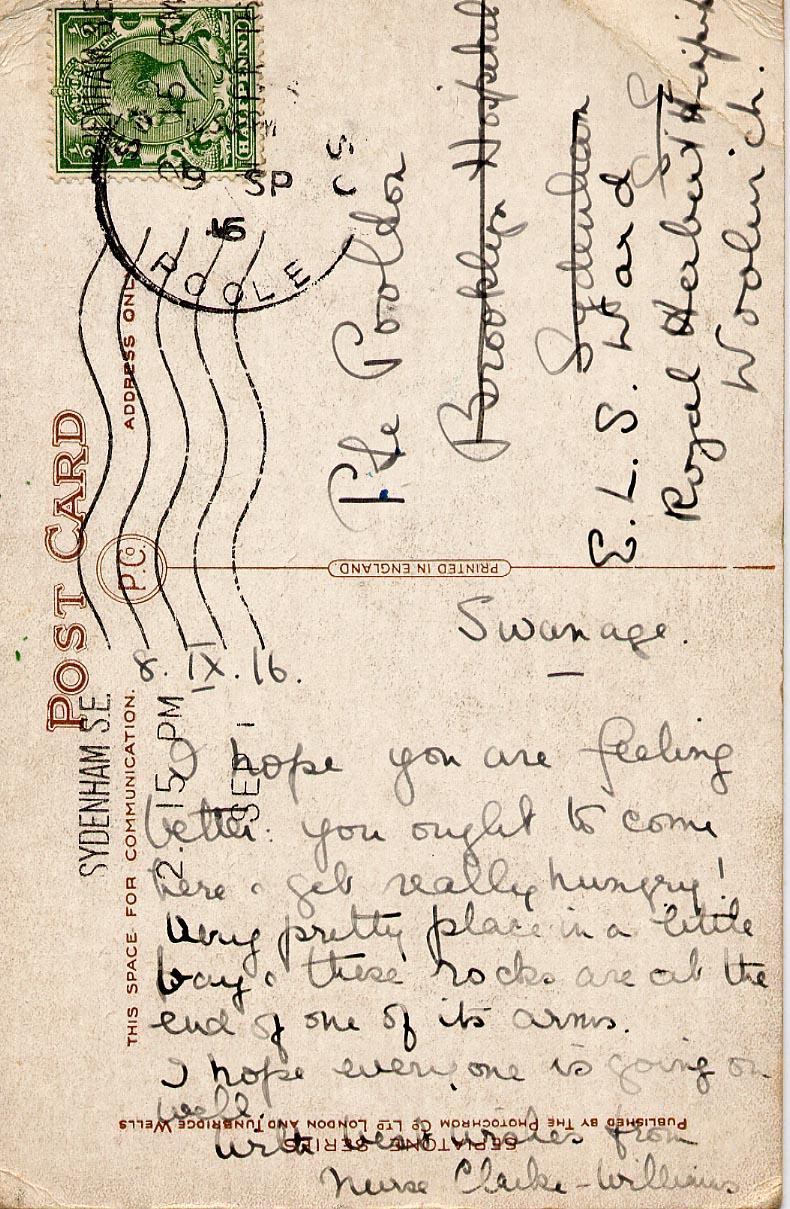 POST CARD
P.Co
THIS SPACE FOR COMMUNICATION.
ADDRESS ONLY
PRINTED IN ENGLAND
SYDENHAM S.E.
2.15 PM
POOLE
9 SP
16
HALFPENNY
Pte Pooldon
Brooklyn Hospital
Sydenham
S.E.
E.L.S. Ward
Royal Herbert Hospit
Woolwich.
Swanage.
8. IX. 16.
I hope you are feeling
better: you ought to come
here & get really hungry!
Very pretty place in a little
bay & these rocks are at the
end of one of its arms.
I hope everyone is going on
well.
With best wishes from
Nurse Clarke-Williams
SEPIATONE SERIES
PUBLISHED BY THE PHOTOCHROM CO LTD LONDON AND TUNBRIDGE WELLS